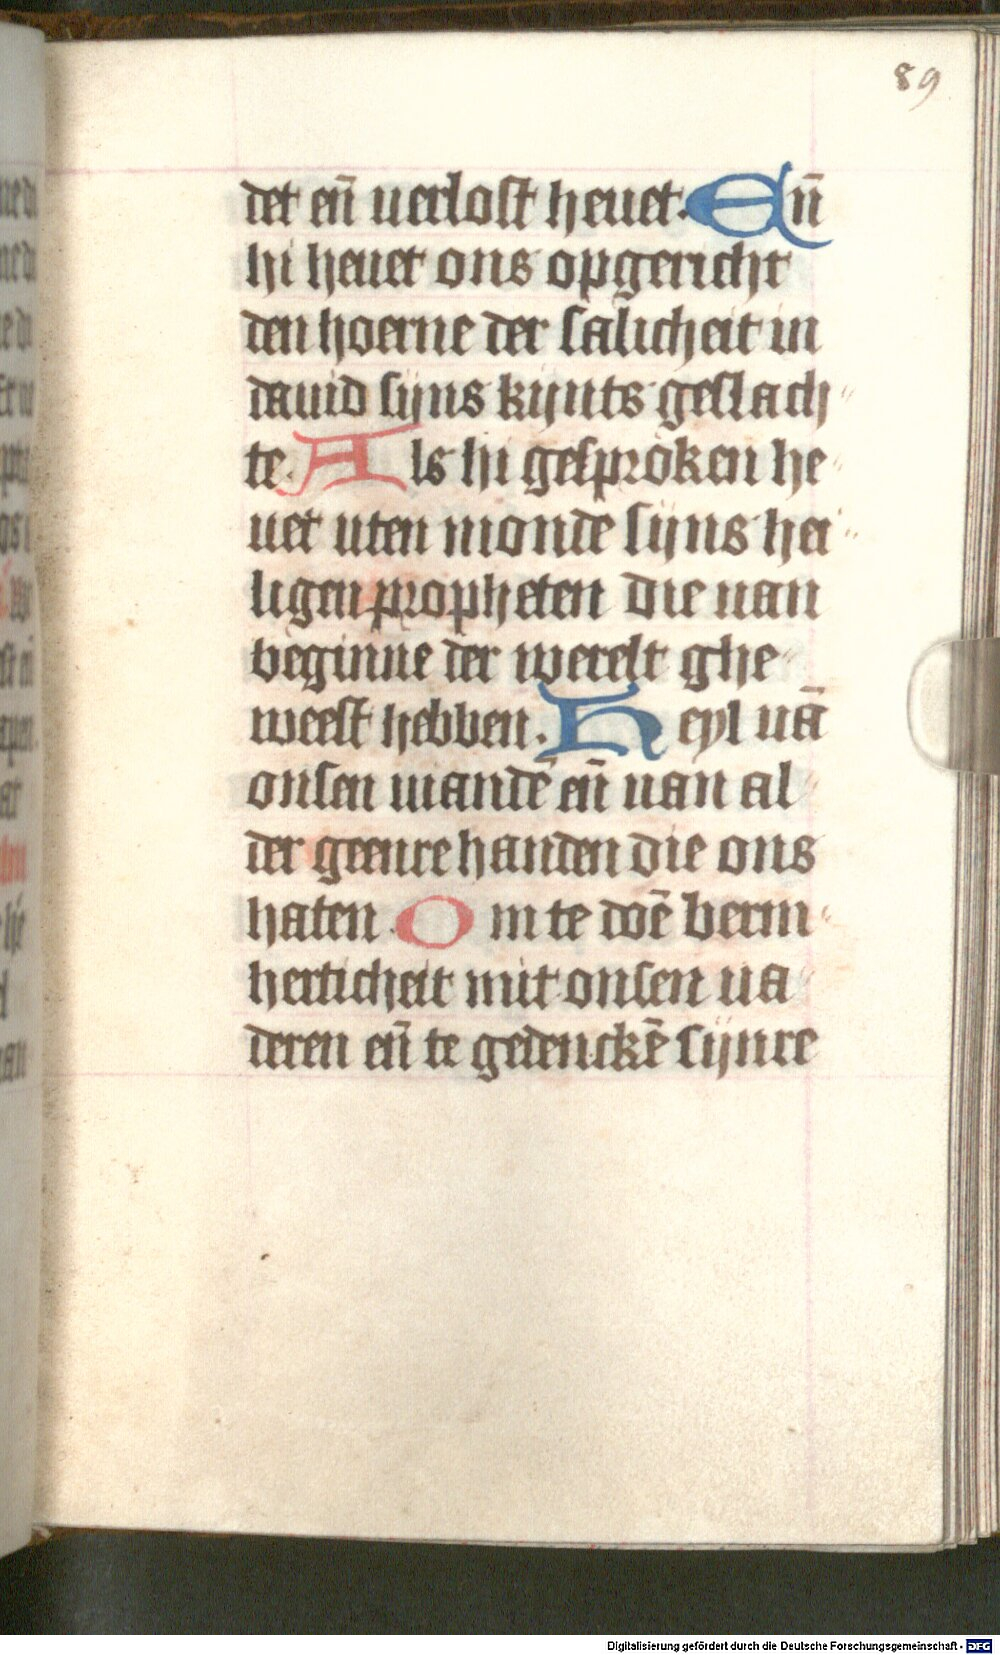 89
det en̄ uerlost heuet. En̄
hi heuet ons opgericht
den hoerne der salicheit in
dauid sijns kijnts geslach
te. Als hi gesproken he
uet uten monde sijns hei
ligen propheten die uan
beginne der werelt ghe
weest hebben. Heyl uā
onsen uiandē en̄ uan al
der geenre handen die ons
haten. Om te doē berm
herticheit mit onsen ua
deren en̄ te gedenckē sijnre
Digitalisierung gefördert durch die Deutsche Forschungsgemeinschaft - DFG